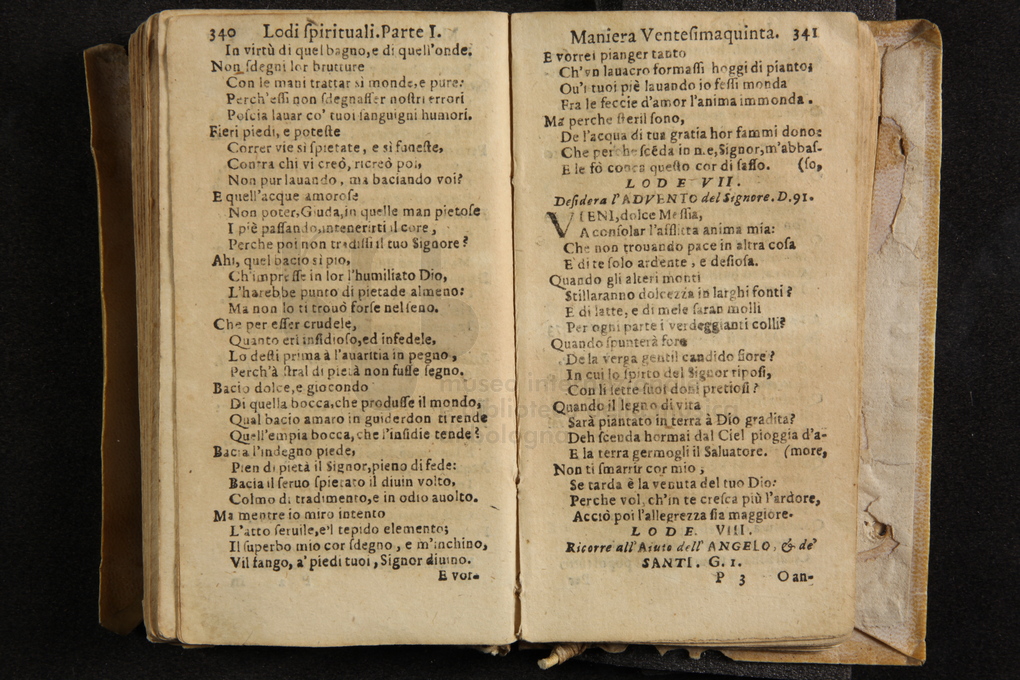 340 Lodi ſpirituali.Parte I.
In virtù di quel bagno,e di quell'onde.
Non ſdegni lor brutture
Con le mani trattar sì monde,e pure:
Perch'eſſi non ſdegnaſſer noſtri errori
Poſcia lauar co' tuoi ſanguigni humori.
Fieri piedi, e poteſte
Correr vie sì ſpietate, e sì funeſte,
Contra chi vi creò, ricreò poi,
Non pur lauando, ma baciando voi?
E quell'acque amoroſe
Non poter,Giuda,in quelle man pietoſe
I piè paſſando,intenerirti il core,
Perche poi non tradiſſi il tuo Signore?
Ahi, quel bacio sì pio,
Ch'impreſſe in lor l'humiliato Dio,
L'harebbe punto di pietade almeno:
Ma non lo ti trouò forſe nel ſeno.
Che per eſſer crudele,
Quanto eri inſidioſo,ed infedele,
Lo deſti prima à l'auaritia in pegno,
Perch'à ſtral di pietà non fuſſe ſegno.
Bacio dolce,e giocondo
Di quella bocca,che produſſe il mondo,
Qual bacio amaro in guiderdon ti rende
Quell'empia bocca,che l'inſidie tende?
Bacia l'indegno piede,
Pien di pietà il Signor,pieno di fede:
Bacia il ſeruo ſpietato il diuin volto,
Colmo di tradimento,e in odio auolto.
Ma mentre io miro intento
L'atto ſeruile,e'l tepido elemento;
Il ſuperbo mio cor ſdegno, e m'inchino,
Vil fango, a' piedi tuoi, Signor diuino.
E vor-
Maniera Venteſimaquinta. 341
E vorrei pianger tanto
Ch'vn lauacro formaſſi hoggi di pianto;
Ou'i tuoi piè lauando io feſſi monda
Fra le feccie d'amor l'anima immonda.
Ma perche ſteril ſono,
De l'acqua di tua gratia hor fammi dono:
Che perche ſcēda in me,Signor,m'abbaſ-
E le fò conca queſto cor di ſaſſo. (ſo,
LODE VII.
Deſidera l'ADVENTO del Signore. D.91.
VIENI,dolce Meſſia,
A conſolar l'afflitta anima mia:
Che non trouando pace in altra coſa
E di te ſolo ardente, e deſioſa.
Quando gli alteri monti
Stillaranno dolcezza in larghi fonti?
E di latte, e di mele ſaran molli
Per ogni parte i verdeggianti colli?
Quando ſpunterà fore
De la verga gentil candido fiore?
In cui lo ſpirto del Signor ripoſi,
Con li ſette ſuoi doni pretioſi?
Quando il legno di vita
Sarà piantato in terra à Dio gradita?
Deh ſcenda hormai dal Ciel pioggia d'a-
E la terra germogli il Saluatore. (more,
Non ti ſmarrir cor mio,
Se tarda è la venuta del tuo Dio:
Perche vol, ch'in te creſca più l'ardore,
Acciò poi l'allegrezza ſia maggiore.
LODE. VIII.
Ricorre all'Aiuto dell'ANGELO, & de'
SANTI. G. 1.
P 3 O an-